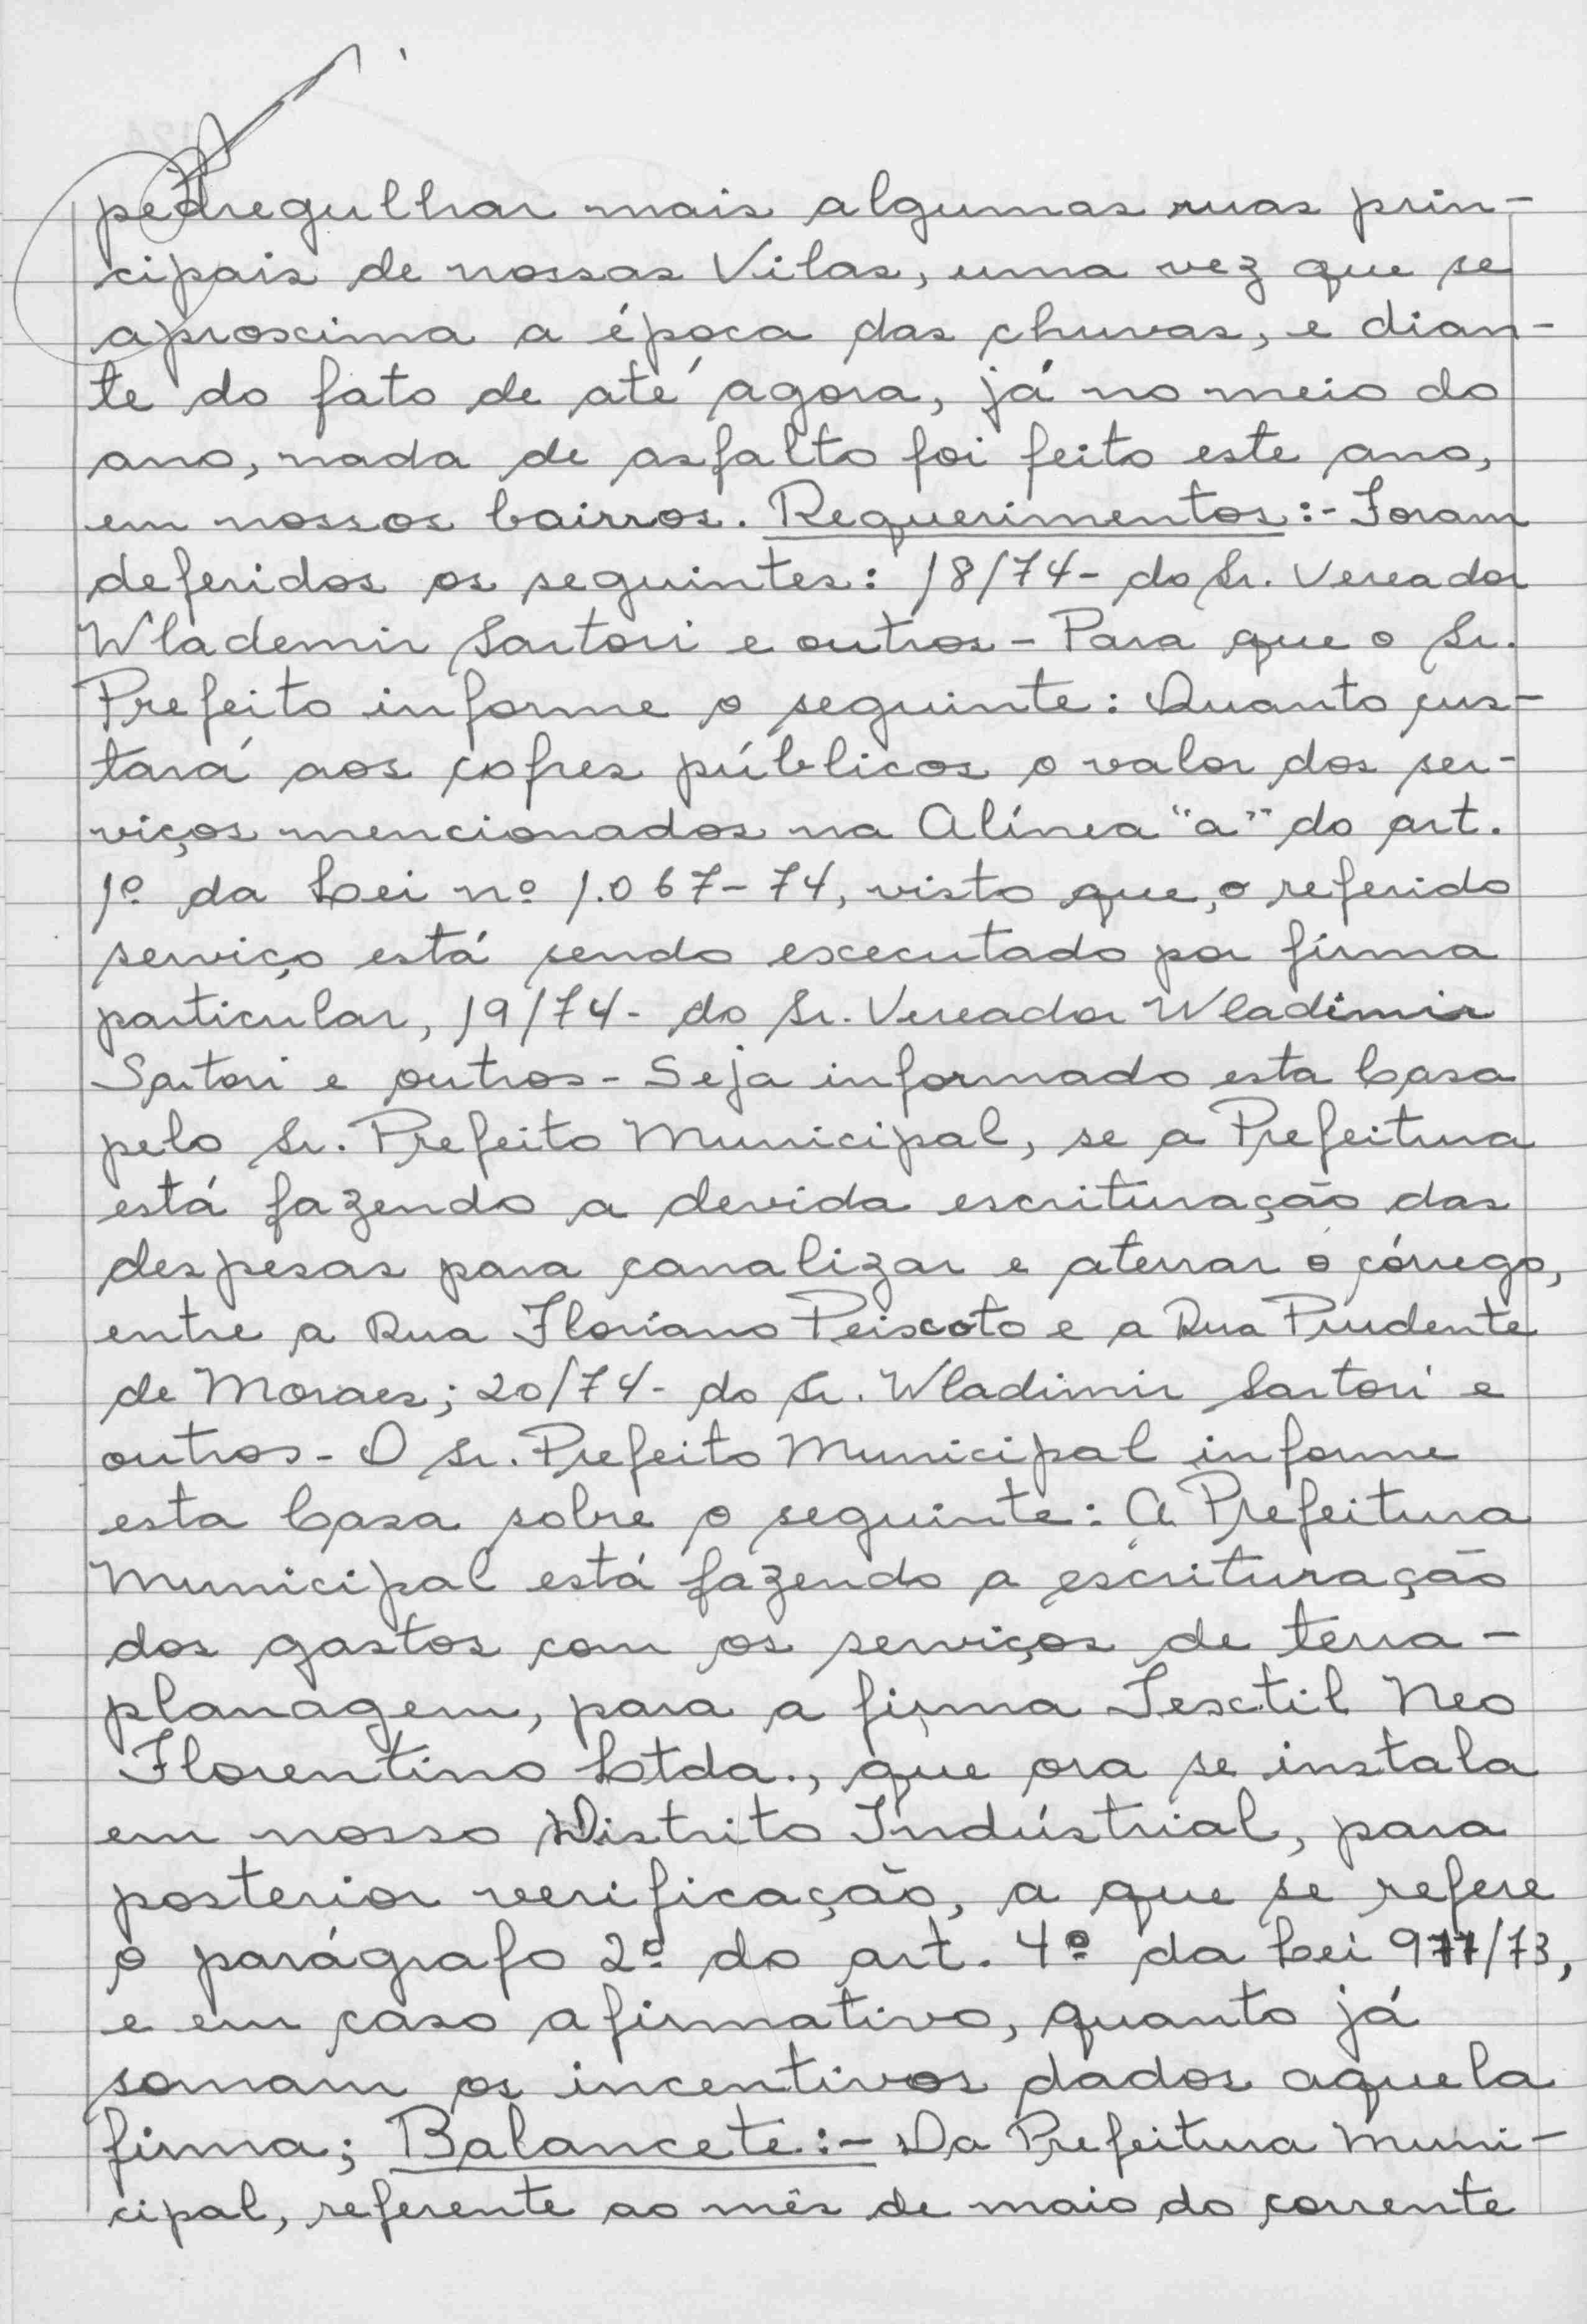 pedregulhar mais algumas ruas prin-
cipais de nossas Vilas, uma vez que se
aproxima a época das chuvas, e dian-
te do fato de até agora, já no meio do
ano, nada de asfalto foi feito este ano,
em nossos bairros. Requerimentos:- Foram
deferidos os seguintes: 18/74- do Sr. Vereador
Wlademir Sartori e outros - Para que o Sr.
Prefeito informe o seguinte: Quanto cus-
tará aos cofres públicos o valor dos ser-
viços mencionados na Alínea "a" do art.
1º da Lei nº 1.067-74, visto que, o referido
serviço está sendo executado por firma
particular, 19/74- do Sr. Vereador Wladimir
Sartori e outros - Seja informado esta Casa
pelo Sr. Prefeito Municipal, se a Prefeitura
está fazendo a devida escrituração das
despesas para canalizar e aterrar o córrego,
entre a Rua Floriano Peixoto e a Rua Prudente
de Moraes; 20/74- do Sr. Wladimir Sartori e
outros - O Sr. Prefeito Municipal informe
esta Casa sobre o seguinte: A Prefeitura
Municipal está fazendo a escrituração
dos gastos com os serviços de terra-
planagem, para a firma Textil Neo
Florentino Ltda., que ora se instala
em nosso Distrito Indústrial, para
posterior verificação, a que se refere
o parágrafo 2º do art. 4º da Lei 977/73,
e em caso afirmativo, quanto já
somam os incentivos dados aquela
firma; Balancete:- Da Prefeitura Muni-
cipal, referente ao mês de maio do corrente